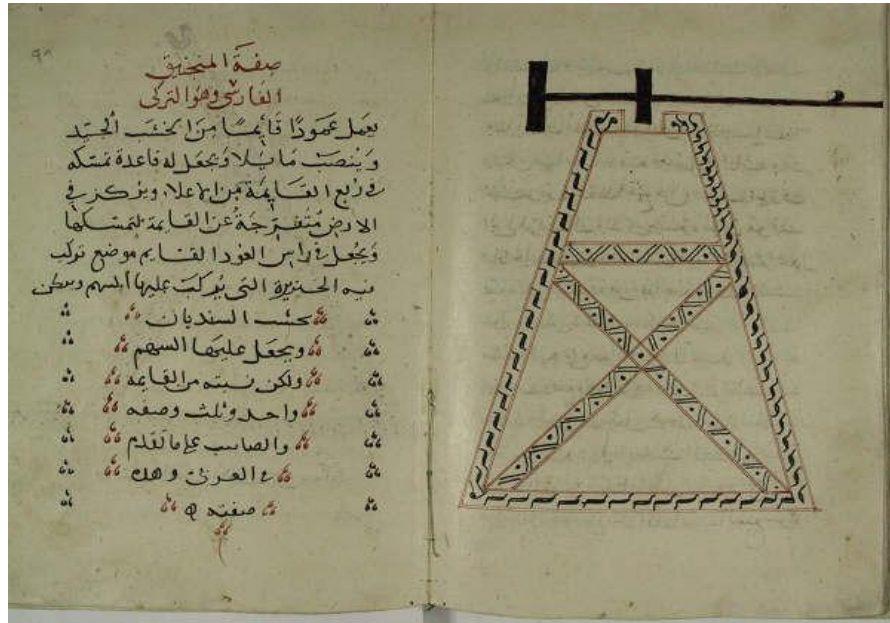 صفة المنجنيق
الفارسي وهو التركي
يعمل عمودًا قايمًا من الخشب الجيّد
وينصب مايلا ويجعل له قاعدة تمسكه
في ربع القايمة من الاعلا ويركز في
الارض منفرجة عن القايمة لتمسكها
ويجعل في راس العود القايم موضع تركب
فيه الخنزيرة التي يركب عليها السهم
بخشب السنديان
ويجعل عليها السهم
ولكن نسبته من القايمه
واحد وثلث وصفه
والصايب على ما تقدم
في العرى وهذه
صفته